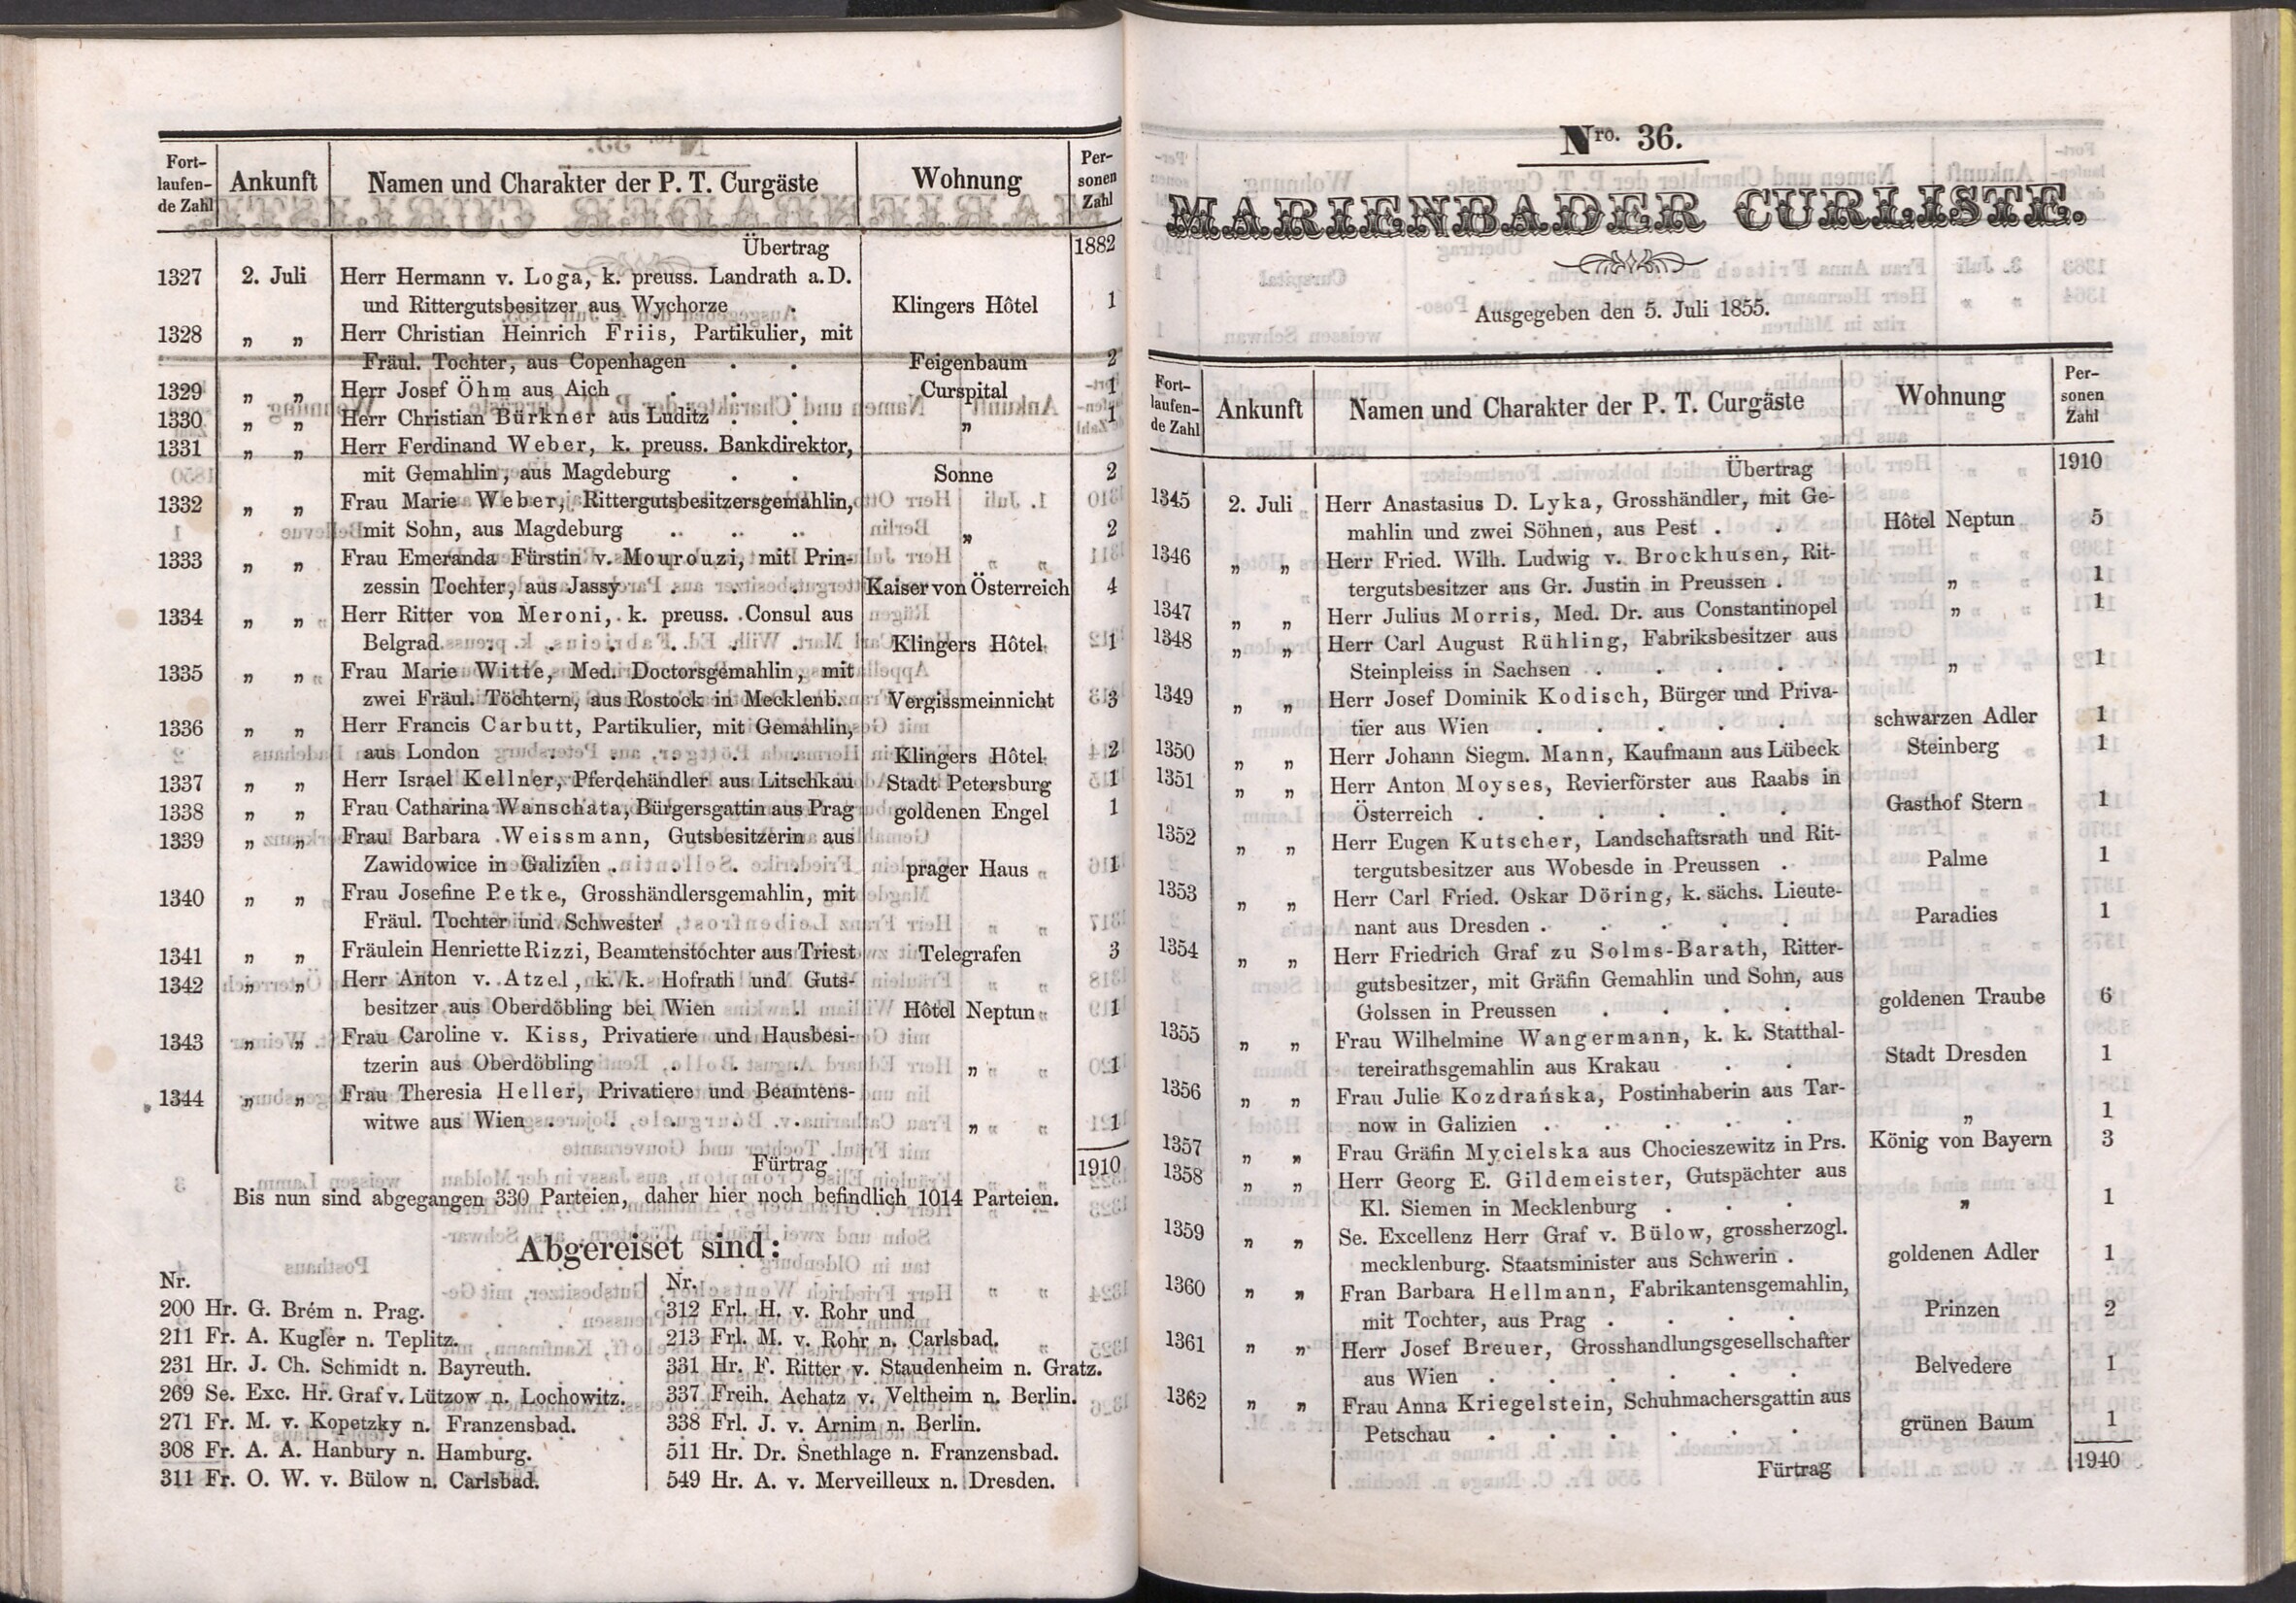 Fort-
laufen-
de Zahl
Ankunft
Namen und Charakter der P. T. Curgäste
Wohnung
Per-
sonen
Zahl
Übertrag 1882
1327 2. Juli Herr Hermann v. Loga, k. preuss. Landrath a. D.
und Rittergutsbesitzer aus Wychorze . Klingers Hôtel 1
1328 „ „ Herr Christian Heinrich Friis, Partikulier, mit
Fräul. Tochter, aus Copenhagen . . Feigenbaum 2
1329 „ „ Herr Josef Öhm aus Aich . . . Curspital 1
1330 „ „ Herr Christian Bürkner aus Luditz . . „ 1
1331 „ „ Herr Ferdinand Weber, k. preuss. Bankdirektor,
mit Gemahlin, aus Magdeburg . . Sonne 2
1332 „ „ Frau Marie Weber, Rittergutsbesitzersgemahlin,
mit Sohn, aus Magdeburg . . . „ 2
1333 „ „ Frau Emeranda Fürstin v. Mourouzi, mit Prin-
zessin Tochter, aus Jassy . . . Kaiser von Österreich 4
1334 „ „ Herr Ritter von Meroni, k. preuss. Consul aus
Belgrad . . . . . . Klingers Hôtel 1
1335 „ „ Frau Marie Witte, Med. Doctorsgemahlin, mit
zwei Fräul. Töchtern, aus Rostock in Mecklenb. Vergissmeinnicht 3
1336 „ „ Herr Francis Carbutt, Partikulier, mit Gemahlin,
aus London . . . . . Klingers Hôtel 2
1337 „ „ Herr Israel Kellner, Pferdehändler aus Litschkau Stadt Petersburg 1
1338 „ „ Frau Catharina Wanschata, Bürgersgattin aus Prag goldenen Engel 1
1339 „ „ Frau Barbara Weissmann, Gutsbesitzerin aus
Zawidowice in Galizien . . . . prager Haus 1
1340 „ „ Frau Josefine Petke, Grosshändlersgemahlin, mit
Fräul. Tochter und Schwester
1341 „ „ Fräulein Henriette Rizzi, Beamtenstochter aus Triest Telegrafen 3
1342 „ „ Herr Anton v. Atzel, k. k. Hofrath und Guts-
besitzer aus Oberdöbling bei Wien . Hôtel Neptun 1
1343 „ „ Frau Caroline v. Kiss, Privatiere und Hausbesi-
tzerin aus Oberdöbling . . . „ 1
1344 „ „ Frau Theresia Heller, Privatiere und Beamtens-
witwe aus Wien . . . . . „ 1
Fürtrag 1910
Bis nun sind abgegangen 330 Parteien, daher hier noch befindlich 1014 Parteien.
Abgereiset sind:
Nr.
200 Hr. G. Brém n. Prag.
211 Fr. A. Kugler n. Teplitz.
231 Hr. J. Ch. Schmidt n. Bayreuth.
269 Se. Exc. Hr. Graf v. Lützow n. Lochowitz.
271 Fr. M. v. Kopetzky n. Franzensbad.
308 Fr. A. A. Hanbury n. Hamburg.
311 Fr. O. W. v. Bülow n. Carlsbad.
Nr.
312 Frl. H. v. Rohr und
213 Frl. M. v. Rohr n. Carlsbad.
331 Hr. F. Ritter v. Staudenheim n. Gratz.
337 Freih. Achatz v. Veltheim n. Berlin.
338 Frl. J. v. Arnim n. Berlin.
511 Hr. Dr. Snethlage n. Franzensbad.
549 Hr. A. v. Merveilleux n. Dresden.
Nro. 36.
MARIENBADER CURLISTE.
Ausgegeben den 5. Juli 1855.
Fort-
laufen-
de Zahl
Ankunft
Namen und Charakter der P. T. Curgäste
Wohnung
Per-
sonen
Zahl
Übertrag 1910
1345 2. Juli Herr Anastasius D. Lyka, Grosshändler, mit Ge-
mahlin und zwei Söhnen, aus Pest . . Hôtel Neptun 5
1346 „ „ Herr Fried. Wilh. Ludwig v. Brockhusen, Rit-
tergutsbesitzer aus Gr. Justin in Preussen . „ 1
1347 „ „ Herr Julius Morris, Med. Dr. aus Constantinopel „ 1
1348 „ „ Herr Carl August Rühling, Fabriksbesitzer aus
Steinpleiss in Sachsen . . . . „ 1
1349 „ „ Herr Josef Dominik Kodisch, Bürger und Priva-
tier aus Wien . . . . . schwarzen Adler 1
1350 „ „ Herr Johann Siegm. Mann, Kaufmann aus Lübeck Steinberg 1
1351 „ „ Herr Anton Moyses, Revierförster aus Raabs in
Österreich . . . . . . Gasthof Stern 1
1352 „ „ Herr Eugen Kutscher, Landschaftsrath und Rit-
tergutsbesitzer aus Wobesde in Preussen . Palme 1
1353 „ „ Herr Carl Fried. Oskar Döring, k. sächs. Lieute-
nant aus Dresden . . . . . Paradies 1
1354 „ „ Herr Friedrich Graf zu Solms-Barath, Ritter-
gutsbesitzer, mit Gräfin Gemahlin und Sohn, aus
Golssen in Preussen . . . . goldenen Traube 6
1355 „ „ Frau Wilhelmine Wangermann, k. k. Statthal-
tereirathsgemahlin aus Krakau . . Stadt Dresden 1
1356 „ „ Frau Julie Kozdrańska, Postinhaberin aus Tar-
now in Galizien . . . . . „ 1
1357 „ „ Frau Gräfin Mycielska aus Chocieszewitz in Prs. König von Bayern 3
1358 „ „ Herr Georg E. Gildemeister, Gutspächter aus
Kl. Siemen in Mecklenburg . . . „ 1
1359 „ „ Se. Excellenz Herr Graf v. Bülow, grossherzogl.
mecklenburg. Staatsminister aus Schwerin . goldenen Adler 1
1360 „ „ Fran Barbara Hellmann, Fabrikantensgemahlin,
mit Tochter, aus Prag . . . . Prinzen 2
1361 „ „ Herr Josef Breuer, Grosshandlungsgesellschafter
aus Wien . . . . . . Belvedere 1
1362 „ „ Frau Anna Kriegelstein, Schuhmachersgattin aus
Petschau . . . . . . grünen Baum 1
Fürtrag 1940